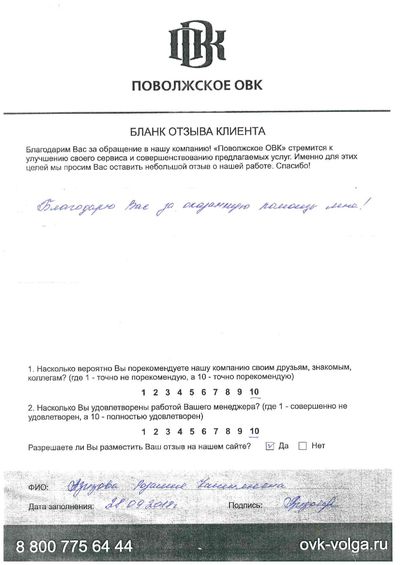 ПОВОЛЖСКОЕ ОВК
БЛАНК ОТЗЫВА КЛИЕНТА
Благодарим Вас за обращение в нашу компанию! «Поволжское ОВК» стремится к
улучшению своего сервиса и совершенствованию предлагаемых услуг. Именно для этих
целей мы просим Вас оставить небольшой отзыв о нашей работе. Спасибо!
Благодарю Вас за оказанную помощь мне!
1. Насколько вероятно Вы порекомендуете нашу компанию своим друзьям, знакомым,
коллегам? (где 1 - точно не порекомендую, а 10 - точно порекомендую)
1 2 3 4 5 6 7 8 9 10
2. Насколько Вы удовлетворены работой Вашего менеджера? (где 1 - совершенно не
удовлетворен, а 10 - полностью удовлетворен)
1 2 3 4 5 6 7 8 9 10
Разрешаете ли Вы разместить Ваш отзыв на нашем сайте? Да Нет
ФИО:
Дата заполнения: Подпись:
8 800 775 64 44 ovk-volga.ru